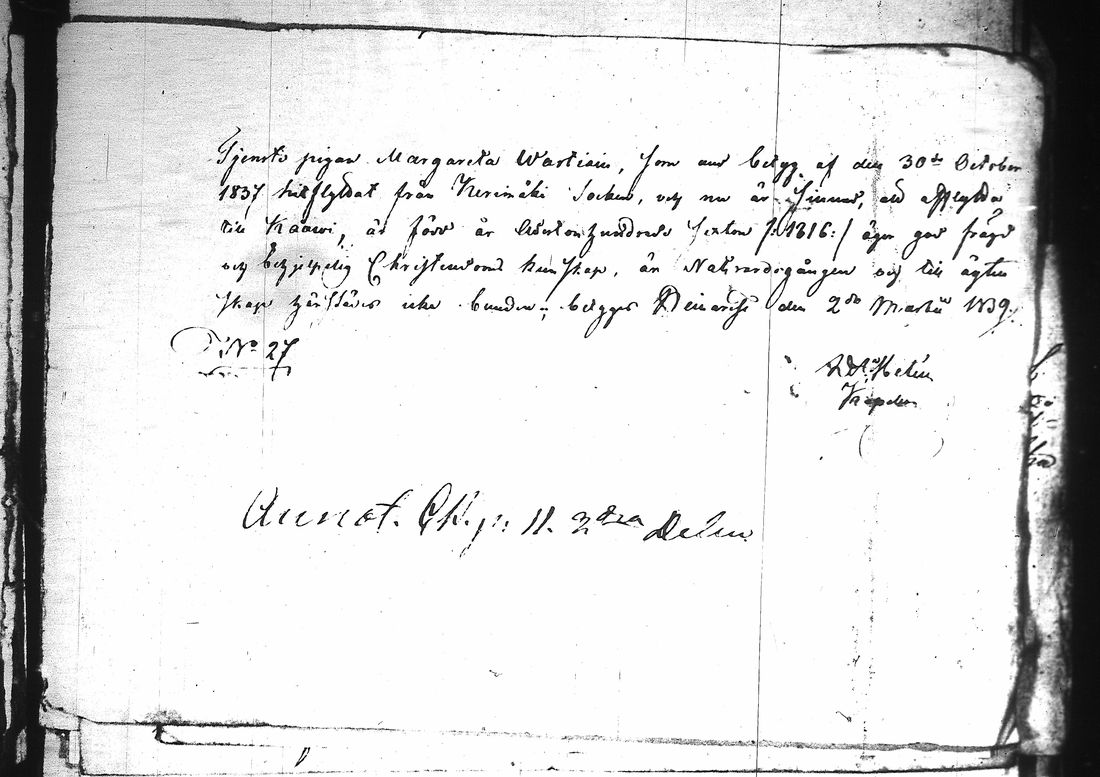 Tjensto pigan Margareta Wartiain, som med betyg af den 30de October
1837 hitflyttat från Kerimäki Socken, och nu är sinnad, att afflytta
till Kaawi, är född år Adertonhundrade Sexton /:1816:/ äger god frägd
och behjelplig Christendoms kunskap, är Nattvardsgången och till ägten
skap härstädes icke bunden; betygar Heinäwesi den 2dra Martii 1839.
N:o 27
Helin
Kapelan
Annot. Ck. p. 11. 2dra Delen